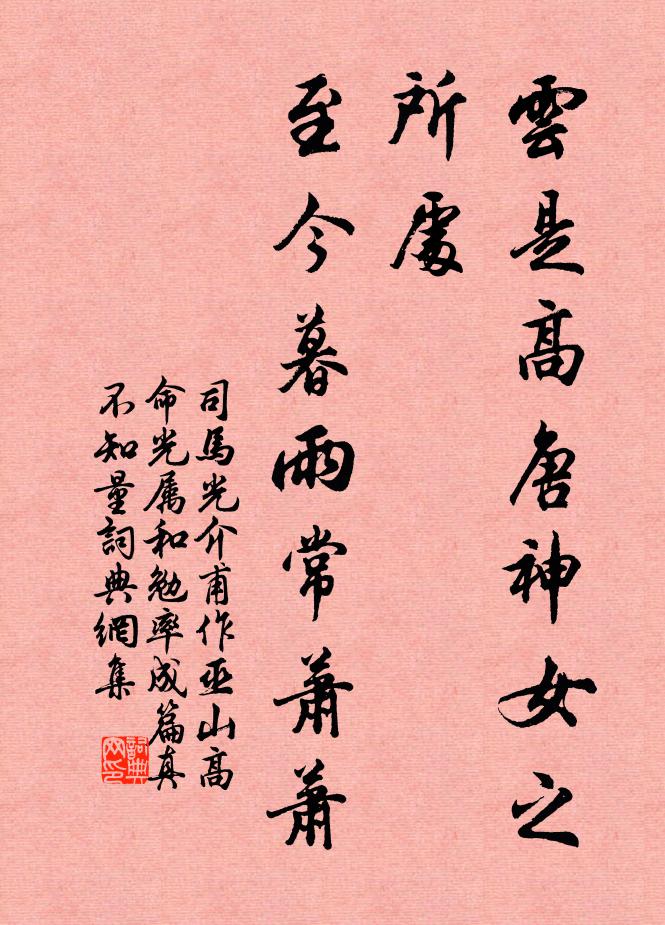 雲是高唐神女之
所處
至今暮雨常蕭蕭
司馬光介甫作巫山高
命光属和勉率成篇真
不知量詞典網集
詞典
网印